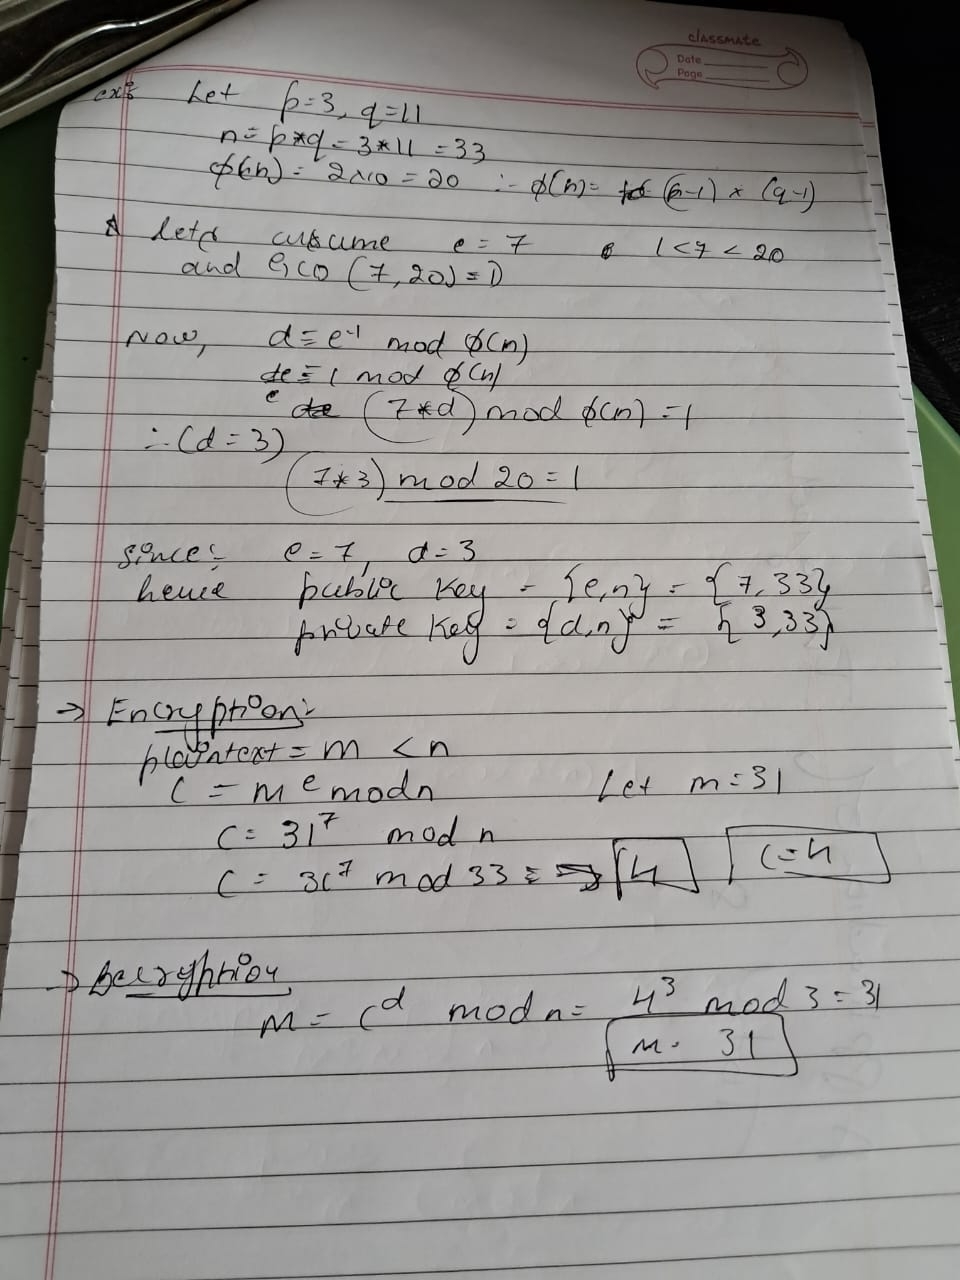 classmate
Date
Page
ex:- Let p=3, q=11
n = p*q = 3*11 = 33
φ(n) = 2×10 = 20 ∵ φ(n) = (p-1) × (q-1)
let's assume e = 7 1<7<20
and GCD (7,20) = 1)
Now, d = e⁻¹ mod φ(n)
de ≡ 1 mod φ(n)
(7*d) mod φ(n) = 1
∴ (d = 3)
(7*3) mod 20 = 1
since:- e = 7, d = 3
hence public key = {e,n} = {7,33}
private key = {d,n} = {3,33}
→ Encryption:-
plaintext = m < n
C = mᵉ mod n Let m = 31
C = 31⁷ mod n
C = 31⁷ mod 33 = 4 C = 4
→ Decryption
M = Cᵈ mod n = 4³ mod 3 = 31
M = 31